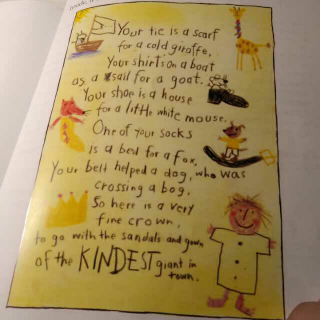 Your tie is a scarf
for a cold giraffe,
Your shirt's on a boat
as a sail for a goat.
Your shoe is a house
for a little white mouse.
One of your socks
is a bed for a fox.
Your belt helped a dog, who was
crossing a bog.
So here is a very
fine crown,
to go with the sandals and gown
of the KINDEST giant in
town.